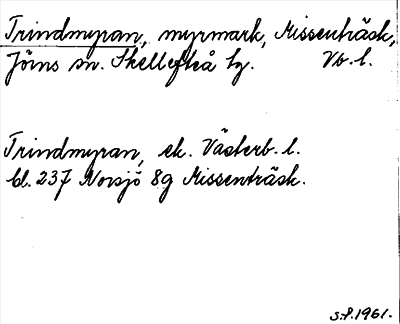 Trindmyran, myrmark, Missenträsk,
Jörns sn. Skellefteå tg. Vb. l.
Trindmyran, ek. Västerb. l.
bl. 237 Norsjö 8g Missenträsk.
S.P. 1961.